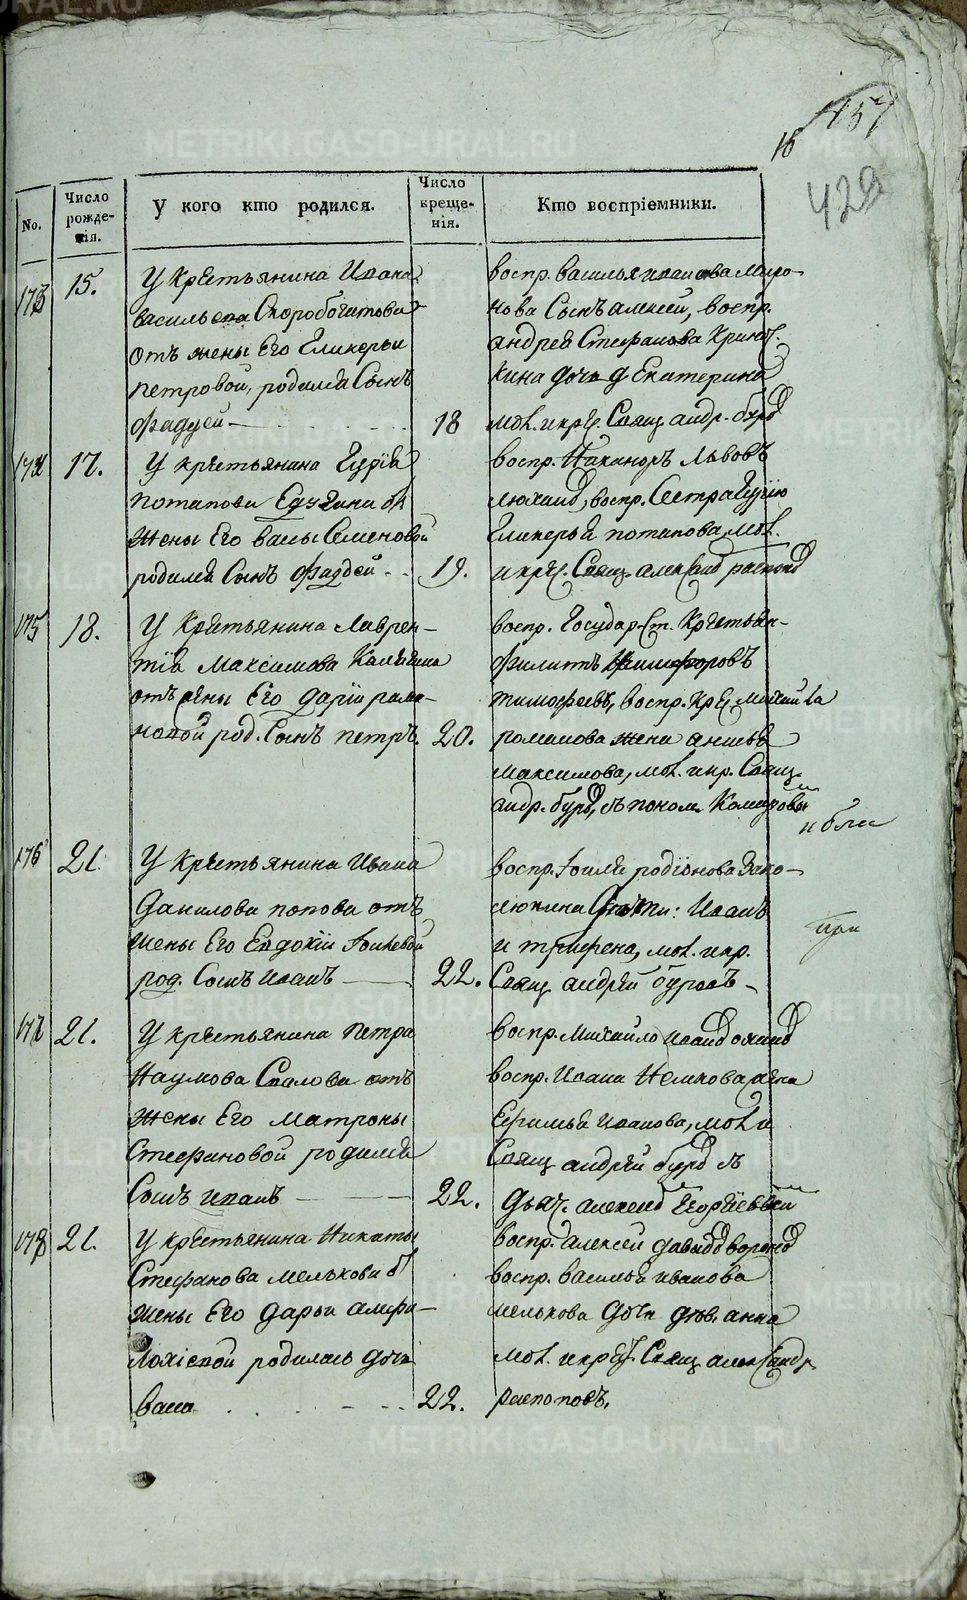 16 157
429
No.
Число рожде-нія.
У кого кто родился.
Число креще-нія.
Кто воспріемники.
173 15. У крестьянина Ивана
васильева Скоробогатова
отъ жены Его Гликерьи
петровой, родился Сынъ
Фадуей 18
воспр. василья иванова Миро-
нова Сынъ алексей, воспр.
андрея Стефанова
кина дочь д Екатерина
мол. и кре. Свящ андр. бурд
174 17. У крестьянина Гурія
потапова от
жены Его вассы Семеновой
родился Сынъ Фаддей 19.
воспр. Никаноръ Львовъ
воспр. Сестра Гурію
Гликерья потапова, мол.
и кре. Свящ. александ распопо
175 18. У Крестьянина Лаврен-
тія Максимова
отъ жены Его даріи рома-
новой род. Сынъ петръ. 20.
воспр. Государ. Ст. Крестьян-
филипъ Никифоровъ
тимофеевъ, воспр. кре. Михаила
романова жена анисья
максимова, мол. и кр. Свящ
андр. бурд, съ поном. Комаровы
176 21. У крестьянина Ивана
данилова попова отъ
жены Его Евдокіи
род. Сынъ иванъ 22.
воспр. родіонова
люкина дети: Иванъ
и трифена, мол. и кр.
Свящ андрей бурдовъ
177 21. У крестьянина петра
Наумова отъ
жены Его матроны
Стефановой родился
Сынъ иванъ 22.
воспр. михайло иванов
воспр. Ивана жена
Ефимья иванова, мол. и
Свящ андрей бурд съ
дьяч. алексеем Георгіевым
178 21. У крестьянина Никиты
Стефанова мелькова от
жены Его дарьи амфи-
лохіевой родилась дочь
васса 22.
воспр. алексей давыдов
воспр. василья иванова
мелькова дочь дев. анна
мол. и крес. Свящ александр
распоповъ.
METRIKI.GASO-URAL.RU